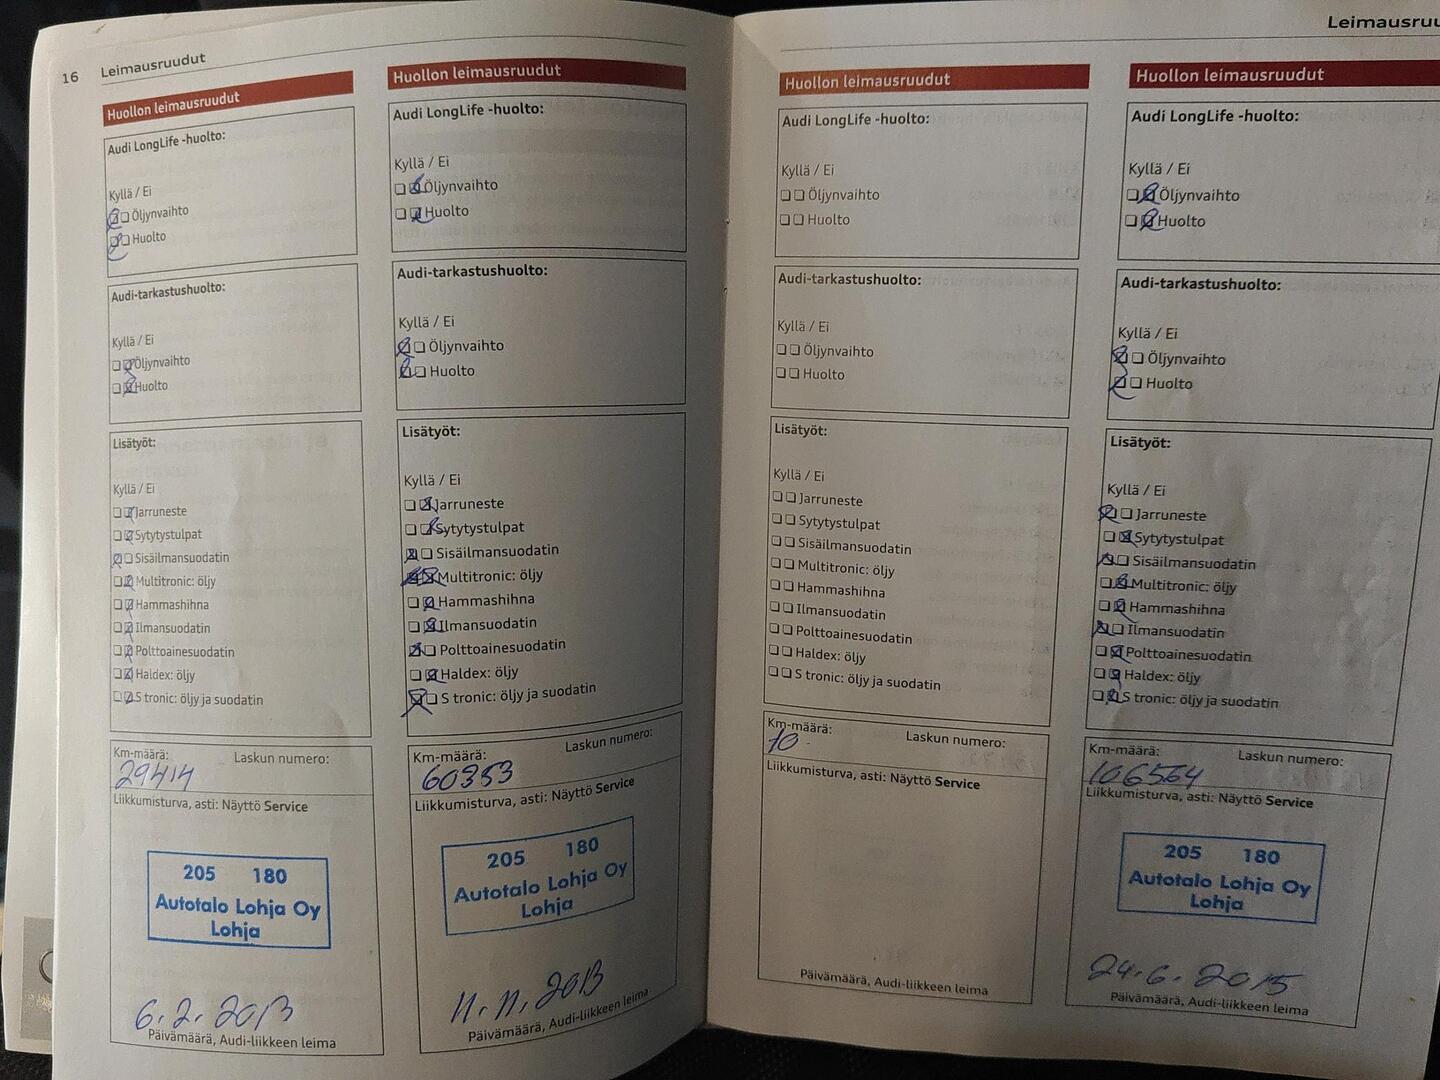 16 Leimausruudut
Huollon leimausruudut
Audi LongLife -huolto:
Kyllä / Ei
Öljynvaihto
Huolto
Audi-tarkastushuolto:
Kyllä / Ei
Öljynvaihto
Huolto
Lisätyöt:
Kyllä / Ei
Jarruneste
Sytytystulpat
Sisäilmansuodatin
Multitronic: öljy
Hammashihna
Ilmansuodatin
Polttoainesuodatin
Haldex: öljy
S tronic: öljy ja suodatin
Km-määrä: Laskun numero:
29414
Liikkumisturva, asti: Näyttö Service
205 180
Autotalo Lohja Oy
Lohja
6.2.2013
Päivämäärä, Audi-liikkeen leima
Huollon leimausruudut
Audi LongLife -huolto:
Kyllä / Ei
Öljynvaihto
Huolto
Audi-tarkastushuolto:
Kyllä / Ei
Öljynvaihto
Huolto
Lisätyöt:
Kyllä / Ei
Jarruneste
Sytytystulpat
Sisäilmansuodatin
Multitronic: öljy
Hammashihna
Ilmansuodatin
Polttoainesuodatin
Haldex: öljy
S tronic: öljy ja suodatin
Km-määrä: Laskun numero:
60353
Liikkumisturva, asti: Näyttö Service
205 180
Autotalo Lohja Oy
Lohja
11.11.2013
Päivämäärä, Audi-liikkeen leima
Leimausru
Huollon leimausruudut
Audi LongLife -huolto:
Kyllä / Ei
Öljynvaihto
Huolto
Audi-tarkastushuolto:
Kyllä / Ei
Öljynvaihto
Huolto
Lisätyöt:
Kyllä / Ei
Jarruneste
Sytytystulpat
Sisäilmansuodatin
Multitronic: öljy
Hammashihna
Ilmansuodatin
Polttoainesuodatin
Haldex: öljy
S tronic: öljy ja suodatin
Km-määrä: Laskun numero:
10
Liikkumisturva, asti: Näyttö Service
Päivämäärä, Audi-liikkeen leima
Huollon leimausruudut
Audi LongLife -huolto:
Kyllä / Ei
Öljynvaihto
Huolto
Audi-tarkastushuolto:
Kyllä / Ei
Öljynvaihto
Huolto
Lisätyöt:
Kyllä / Ei
Jarruneste
Sytytystulpat
Sisäilmansuodatin
Multitronic: öljy
Hammashihna
Ilmansuodatin
Polttoainesuodatin
Haldex: öljy
S tronic: öljy ja suodatin
Km-määrä: Laskun numero:
106564
Liikkumisturva, asti: Näyttö Service
205 180
Autotalo Lohja Oy
Lohja
24.6.2015
Päivämäärä, Audi-liikkeen leima